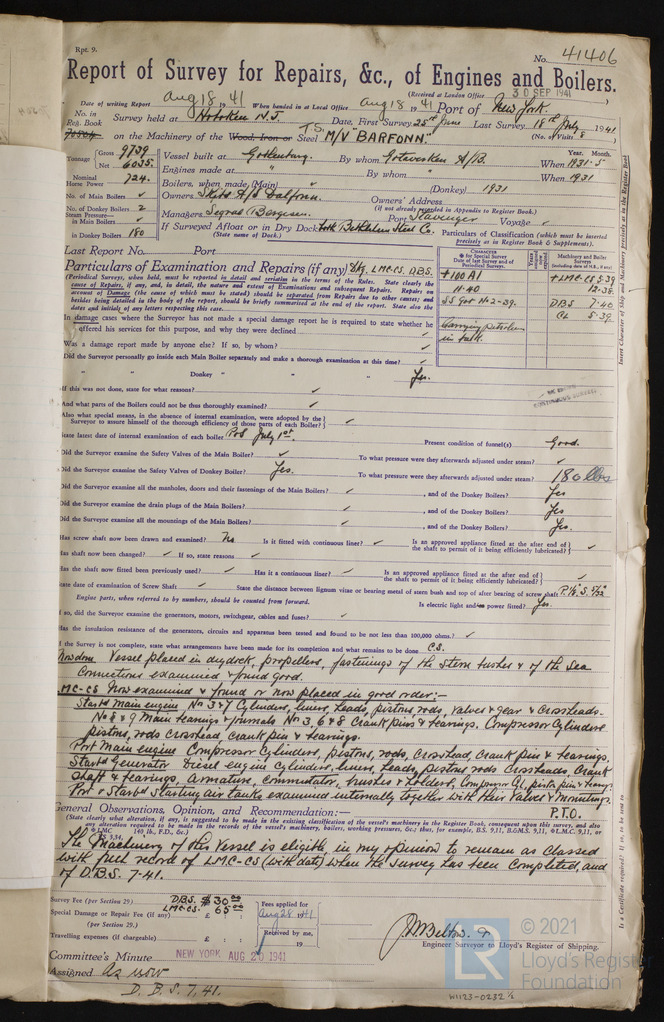 Rpt. 9.
No. 41406
Report of Survey for Repairs, &c., of Engines and Boilers.
(Received at London Office 30 SEP 1941)
Date of writing Report Aug 18 1941 When handed in at Local Office Aug 18 1941 Port of New York.
No. in Reg. Book Survey held at Hoboken N.J. Date, First Survey 25th June Last Survey 18th July 1941
(No. of Visits 8)
on the Machinery of the Wood, Iron or Steel T.S. M/V "BARFONN."
Tonnage Gross 9739 Net 6035
Vessel built at Gothenburg. By whom Gotaverken A/B. When 1931-5
Year. Month.
Engines made at " By whom " When 1931
Nominal Horse Power 724.
Boilers, when made (Main) " (Donkey) 1931
No. of Main Boilers ✓
Owners Skibs A/S Dalfonn. Owners' Address
(if not already recorded in Appendix to Register Book.)
No. of Donkey Boilers 2
Managers Sigval Bergesen. Port Stavanger Voyage ✓
Steam Pressure in Main Boilers ✓
in Donkey Boilers 180
If Surveyed Afloat or in Dry Dock Both Bethlehem Steel Co.
(State name of Dock.)
Particulars of Classification (which must be inserted precisely as in Register Book & Supplements).
Last Report No. Port
Particulars of Examination and Repairs (if any) Dkg. LMC-CS. DBS.
(Periodical Surveys, when held, must be reported in detail and seriatim in the terms of the Rules. State clearly the
cause of Repairs, if any, and, in detail, the nature and extent of Examinations and subsequent Repairs. Repairs on
account of Damage (the cause of which must be stated) should be separated from Repairs due to other causes; and
besides being detailed in the body of the report, should be briefly summarised at the end of report. State also the
dates and initials of any letters respecting this case.
CHARACTER
Machinery and Boiler Surveys
+100A1
11-40
SS Got No 2-39.
Carrying petroleum in bulk.
+LMC-CS 5.39
12-35
DBS 7.40
CL 5.39
In damage cases where the Surveyor has not made a special damage report he is required to state whether he
offered his services for this purpose, and why they were declined ✓
Was a damage report made by anyone else? If so, by whom? ✓
Did the Surveyor personally go inside each Main Boiler separately and make a thorough examination at this time? ✓
" " Donkey " " " Yes.
If this was not done, state for what reasons? ✓
And what parts of the Boilers could not be thus thoroughly examined? ✓
Also what special means, in the absence of internal examination, were adopted by the
Surveyor to assure himself of the thorough efficiency of those parts of each Boiler? ✓
State latest date of internal examination of each boiler P&S July 1st. Present condition of funnel(s) Good.
Did the Surveyor examine the Safety Valves of the Main Boiler? ✓ To what pressure were they afterwards adjusted under steam? ✓
Did the Surveyor examine the Safety Valves of Donkey Boiler? Yes. To what pressure were they afterwards adjusted under steam? 180 lbs
Did the Surveyor examine all the manholes, doors and their fastenings of the Main Boilers? ✓ , and of the Donkey Boilers? Yes
Did the Surveyor examine the drain plugs of the Main Boilers? ✓ , and of the Donkey Boilers? Yes
Did the Surveyor examine all the mountings of the Main Boilers? ✓ , and of the Donkey Boilers? Yes.
Has screw shaft now been drawn and examined? No Is it fitted with continuous liner? ✓ Is an approved appliance fitted at the after end of the shaft to permit of it being efficiently lubricated? ✓
Has shaft now been changed? ✓ If so, state reasons ✓
Has the shaft now fitted been previously used? ✓ Has it a continuous liner? ✓ Is an approved appliance fitted at the after end of the shaft to permit of it being efficiently lubricated? ✓
State date of examination of Screw Shaft ✓ State the distance between lignum vitæ or bearing metal of stern bush and top of after bearing of screw shaft P. 1/8 S. 5/32
Engine parts, when referred to by numbers, should be counted from forward. Is electric light and power fitted? Yes.
If so, did the Surveyor examine the generators, motors, switchgear, cables and fuses? ✓
Has the insulation resistance of the generators, circuits and apparatus been tested and found to be not less than 100,000 ohms.? ✓
If the Survey is not complete, state what arrangements have been made for its completion and what remains to be done C.S.
Now done Vessel placed in drydock, propellers, fastenings of the stern bushes & of the Sea
Connections examined & found good.
LMC-CS Now examined & found or now placed in good order:-
Starbd Main engine No 3 & 7 Cylinders, liners, heads, pistons, rods, valves & gear & crossheads.
No 8 & 9 Main bearings & journals No 3, 6 & 8 Crank pins & bearings. Compressor Cylinders
pistons, rods crosshead, crank pin & bearings.
Port Main engine Compressor Cylinders, pistons, rods, crosshead, crank pin & bearings.
Starbd Generator Diesel engine cylinders, liners, heads, pistons, rods crossheads, crank
shaft & bearings, armature, commutator, brushes & holders, Compressor Cyl, piston pin & bearings.
Port & Starbd Starting air tanks examined internally together with their Valves & Mountings.
P.T.O.
General Observations, Opinion, and Recommendation:—
(State clearly what alteration, if any, is suggested to be made in the existing classification of the vessel's machinery in the Register Book, consequent upon this survey, and also
any alterations required to be made in the records of the vessel's machinery, boilers, working pressures, &c.; thus, for example, B.S. 9,11, B.&M.S. 9,11, +L.M.C. 9,11, or
+LMC 9,34, 140 lb., F.D., &c.)
The Machinery of this Vessel is eligible in my opinion to remain as classed
with fresh record of LMC-CS (with date) when the Survey has been Completed, and
of D.B.S. 7-41.
Survey Fee (per Section 29) DBS. $ 30.00
LMC-CS. 65.00
Special Damage or Repair Fee (if any) £ : :
(per Section 29.)
Travelling expenses (if chargeable) £ : :
Fees applied for Aug 28 1941
Received by me, 19
Engineer Surveyor to Lloyd's Register of Shipping.
Committee's Minute NEW YORK AUG 20 1941
Assigned As now
D.B.S. 7.41.
W1123-0232 1/2
Insert Character of Ship and Machinery precisely as in the Register Book
Is a Certificate required? If so, to be sent to
© 2021
Lloyd's Register
Foundation
LR